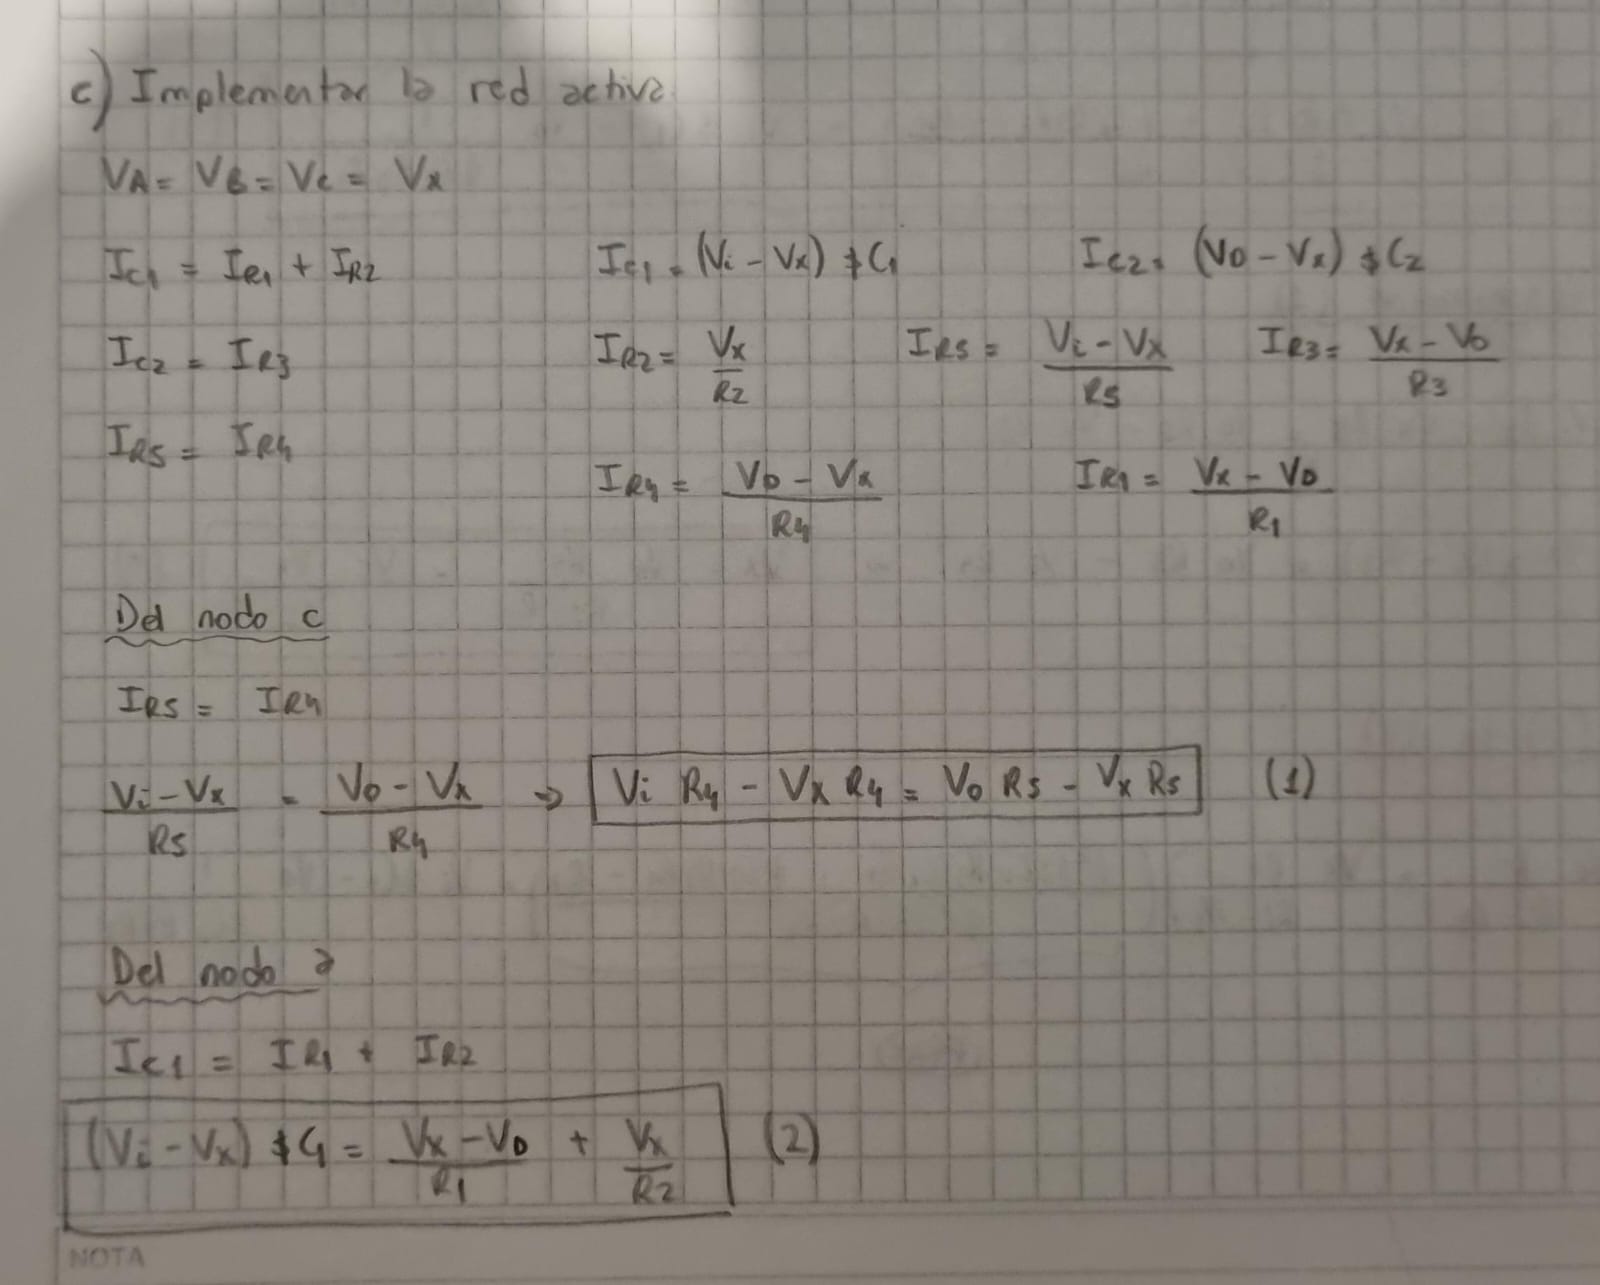 c) Implementar la red activa
VA = VB = VC = Vx
IC1 = IR1 + IR2    IC1 = (Vi - Vx) $ C1    IC2 = (VO - Vx) $ C2
IC2 = IR3    IR2 = Vx / R2    IR5 = Vi - Vx / R5    IR3 = Vx - VO / R3
IR5 = IR4    IR4 = VO - Vx / R4    IR1 = Vx - VO / R1
Del nodo c
IR5 = IR4
Vi - Vx / R5 = VO - Vx / R4 => Vi R4 - Vx R4 = VO R5 - Vx R5 (1)
Del nodo a
IC1 = IR1 + IR2
(Vi - Vx) $ C1 = Vx - VO / R1 + Vx / R2 (2)
NOTA